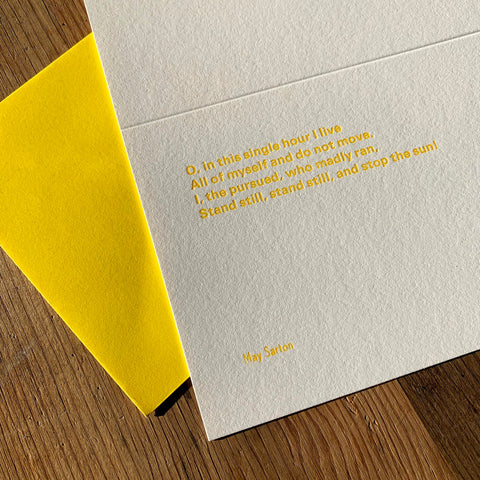 O, in this single hour I live
All of myself and do not move.
I, the pursued, who madly ran,
Stand still, stand still, and stop the sun!
May Sarton